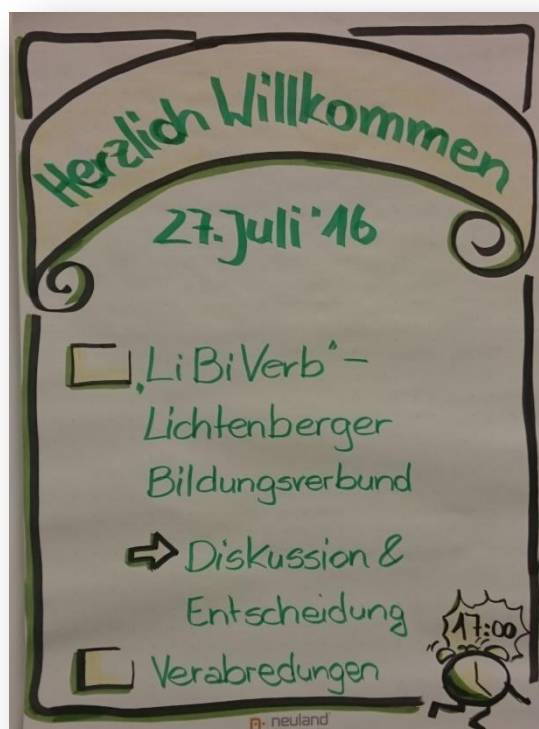 Herzlich Willkommen
27. Juli '16
„LiBiVerb“ -
Lichtenberger
Bildungsverbund
⇨ Diskussion &
Entscheidung
17:00
Verabredungen
neuland